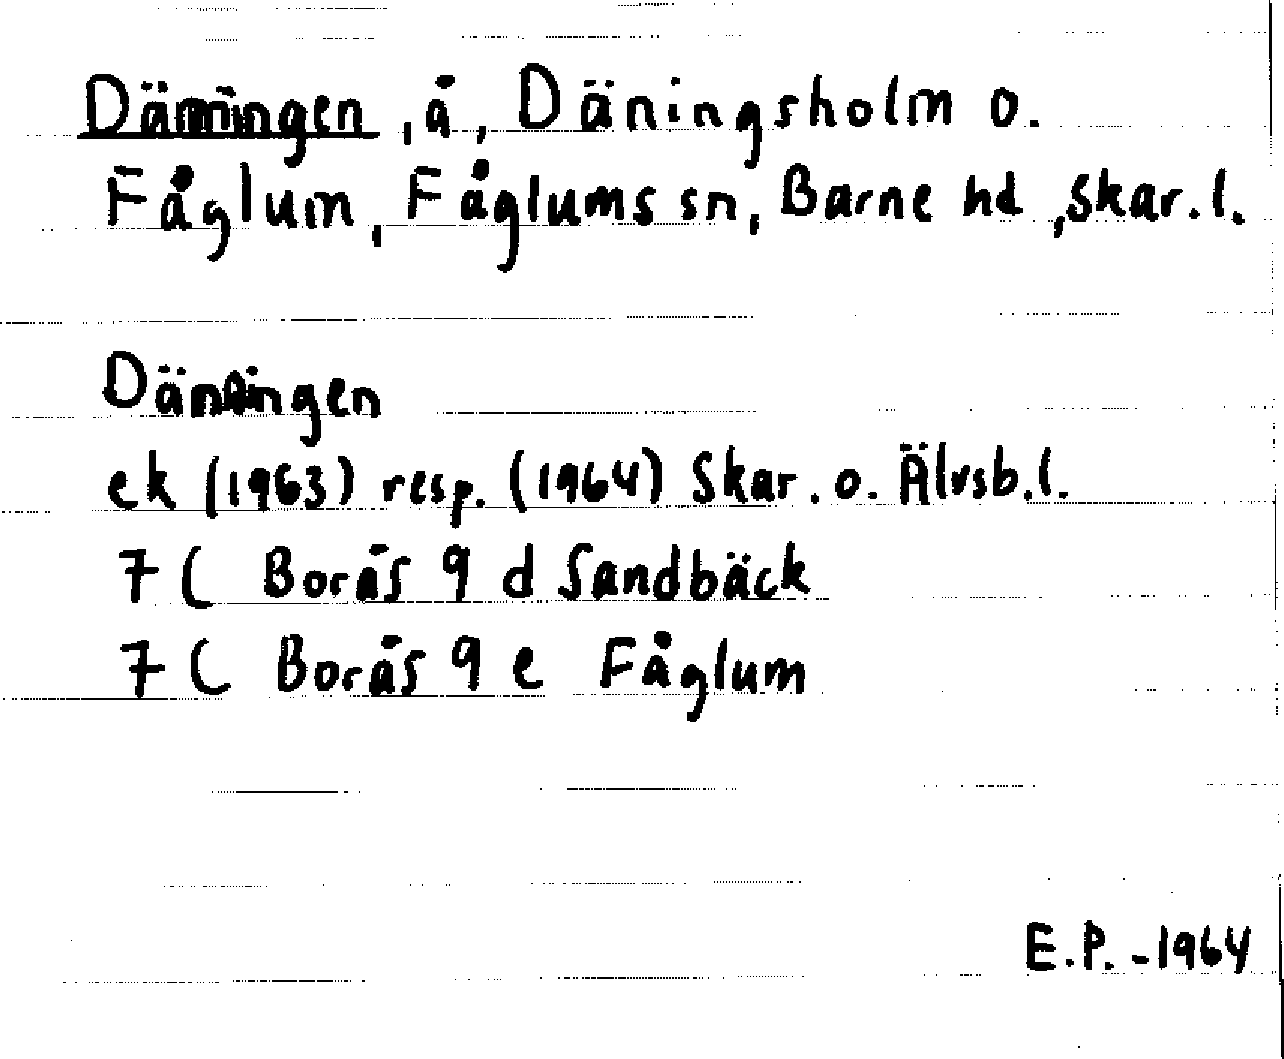 Däningen, å, Däningsholm o.
Fåglum, Fåglums sn, Barne hd, Skar. l.
Däningen
ek (1963) resp. (1964) Skar. o. Älvsb. l.
7 C Borås 9 d Sandbäck
7 C Borås 9 e Fåglum
E.P. - 1964